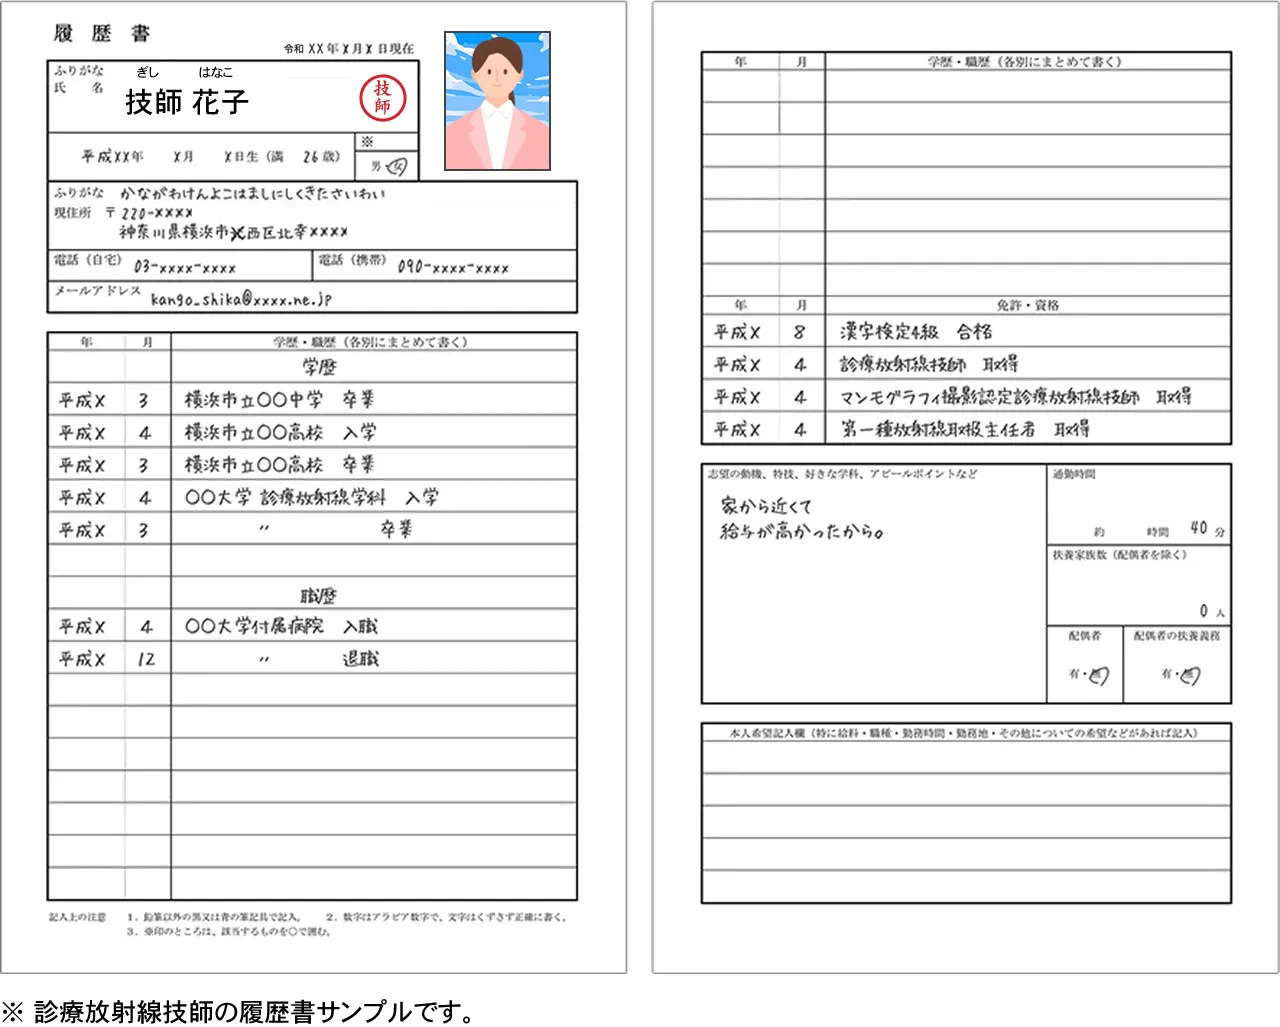 履歴書
令和 XX 年 X 月 X 日現在
ふりがな ぎし はなこ
氏 名 技師 花子
技師
平成XX年 X月 X日生（満 26歳） ※
男・女
ふりがな かながわけんよこはましにしくきたさいわい
現住所 〒 220-xxxx
神奈川県横浜市西区北幸xxxx
電話（自宅） 03-xxxx-xxxx 電話（携帯） 090-xxxx-xxxx
メールアドレス kango_shika@xxxx.ne.jp
年 月 学歴・職歴（各別にまとめて書く）
学歴
平成X 3 横浜市立〇〇中学 卒業
平成X 4 横浜市立〇〇高校 入学
平成X 3 横浜市立〇〇高校 卒業
平成X 4 〇〇大学 診療放射線学科 入学
平成X 3 〃 卒業
職歴
平成X 4 〇〇大学付属病院 入職
平成X 12 〃 退職
記入上の注意 1．鉛筆以外の黒又は青の筆記具で記入。 2．数字はアラビア数字で、文字はくずさず正確に書く。
3．※印のところは、該当するものを〇で囲む。
年 月 学歴・職歴（各別にまとめて書く）
年 月 免許・資格
平成X 8 漢字検定4級 合格
平成X 4 診療放射線技師 取得
平成X 4 マンモグラフィ撮影認定診療放射線技師 取得
平成X 4 第一種放射線取扱主任者 取得
志望の動機、特技、好きな学科、アピールポイントなど
家から近くて
給与が高かったから。
通勤時間
約 時間 40 分
扶養家族数（配偶者を除く）
0 人
配偶者 配偶者の扶養義務
有・無 有・無
本人希望記入欄（特に給料・職種・勤務時間・勤務地・その他についての希望などがあれば記入）
※ 診療放射線技師の履歴書サンプルです。